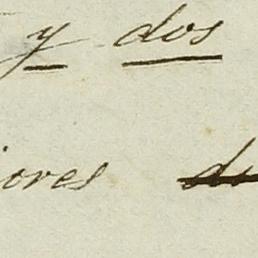 y dos
iores